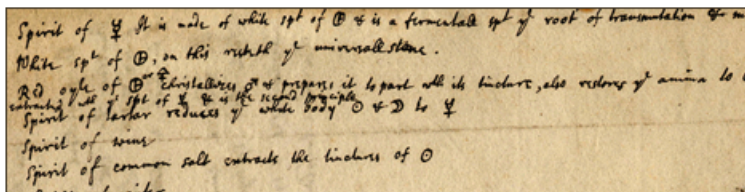 Spirit of ☿ It is made of white spt of 🜨 & is a fermentall spt yᵉ root of transmutation &
White spᵗ of 🜨, on this resteth yᵉ universall stone.
Red oyle of 🜨 or christallizes ♂ & prepares it to part wth its tincture, also restores yᵉ anima to
extracted wth yᵉ spt of & is the second principle
Spirit of tartar reduces yᵉ whole body ☉ & ☽ to ☿
Spirit of wine
Spirit of common salt extracts the tinctures of ☉